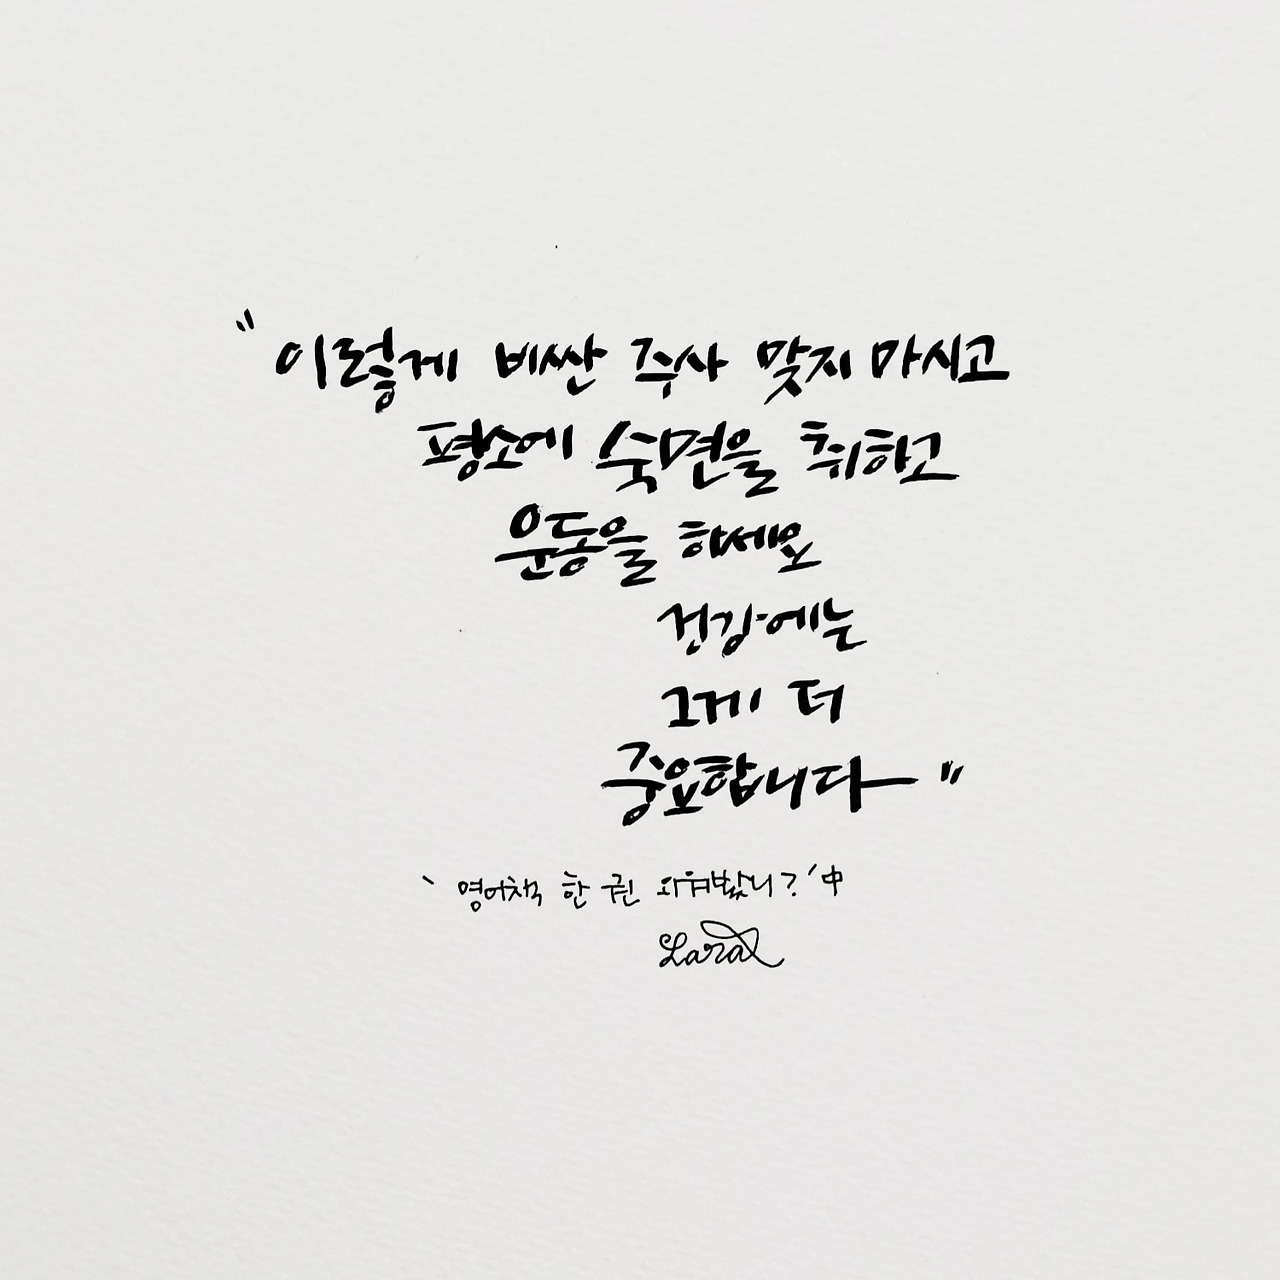 "이렇게 비싼 주사 맞지 마시고
평소에 숙면을 취하고
운동을 하세요
건강에는
그게 더
중요합니다"
'영어책 한 권 외워봤니?' 中
Lara